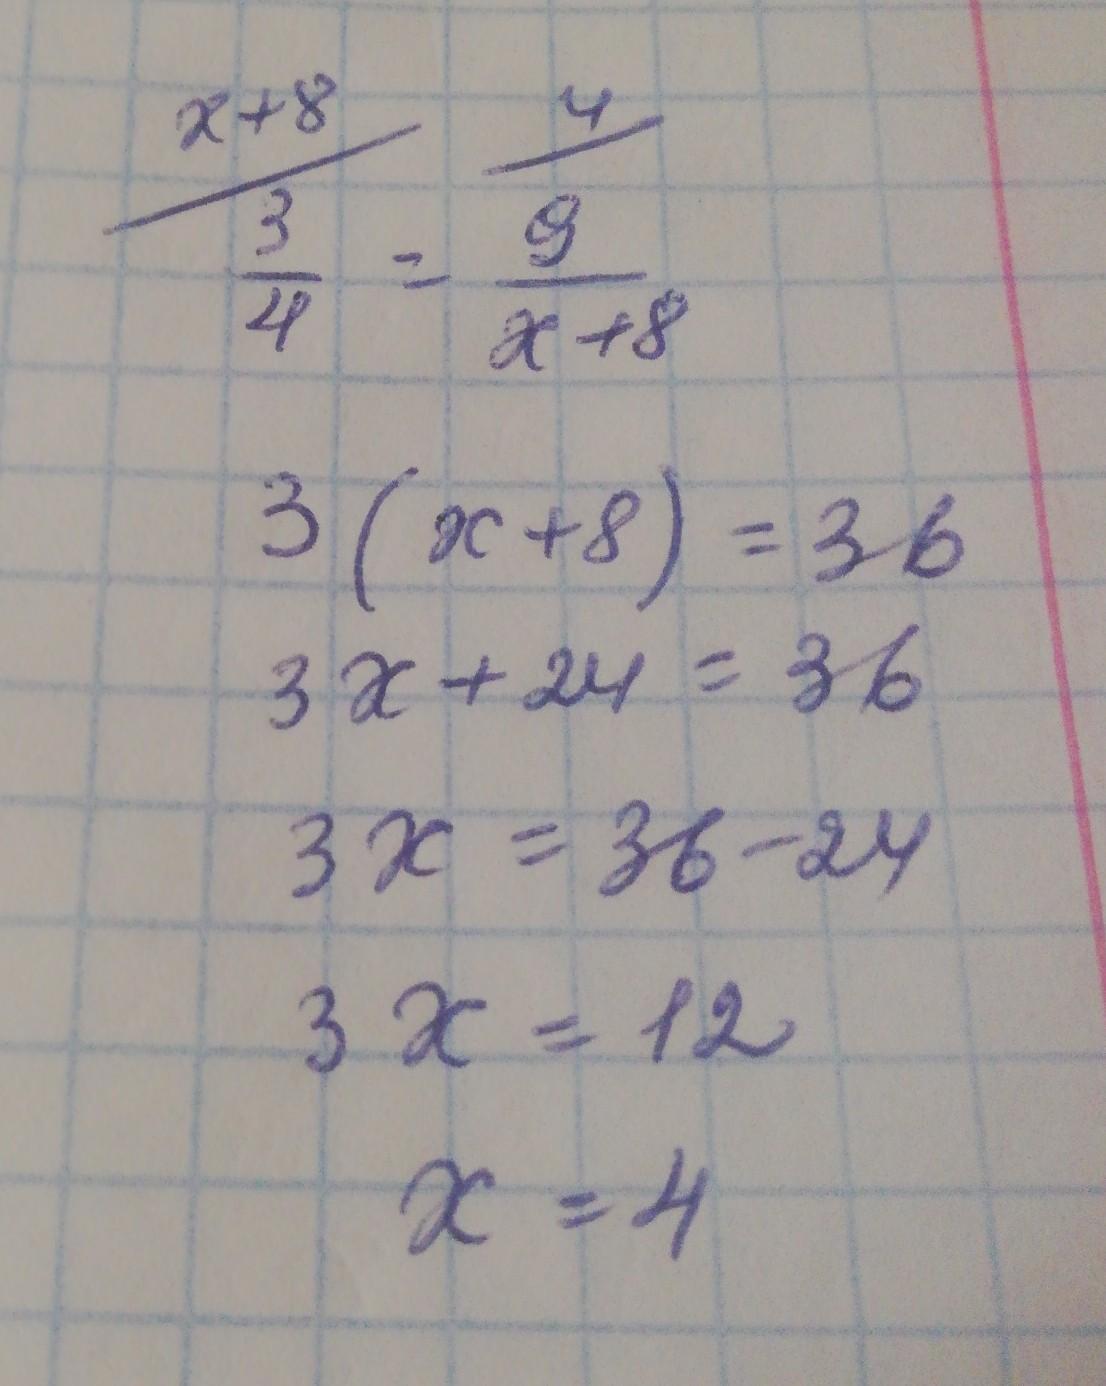 x+8 4
3/4 = 9/x+8
3(x+8)=36
3x+24=36
3x=36-24
3x=12
x=4